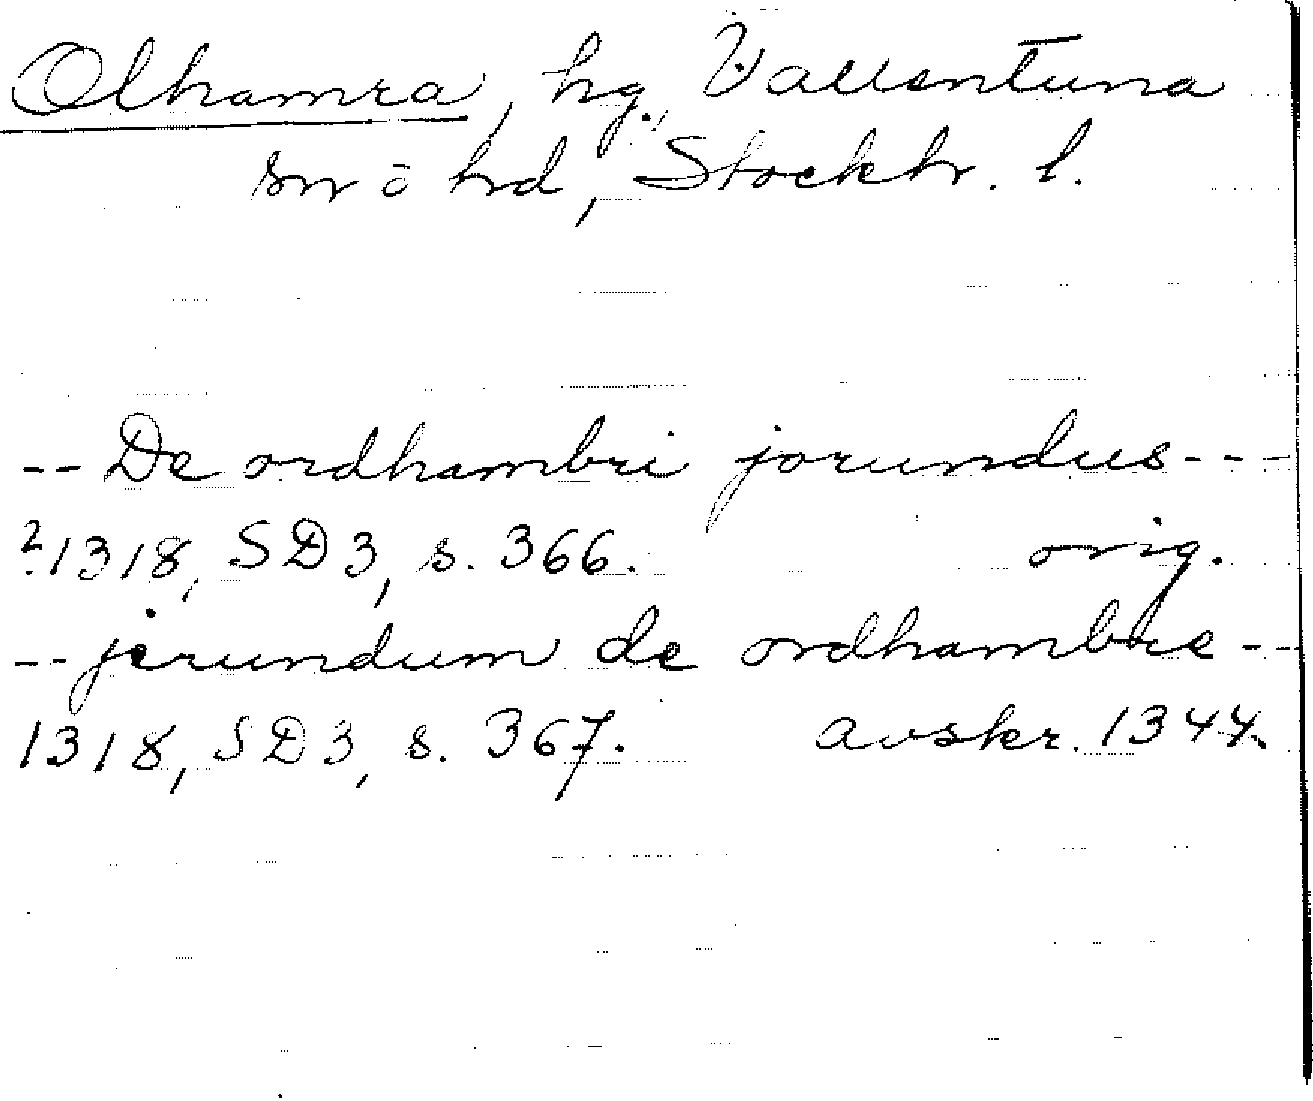 Olhamra, hg., Vallentuna
sn o hd, Stockh. l.
-- De ordhambri jorundus ---
? 1318, SD3, s. 366. orig.
-- jerundum de ordhambre --
1318, SD3, s. 367. avskr. 1344.